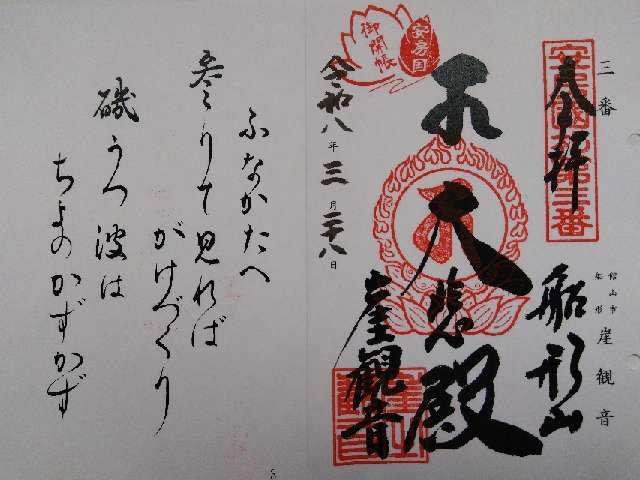 三番
館山市
船形 崖観音
安房國札第三番
奉拝
船形山
大悲殿
崖観音
安房国
御開帳
令和八年三月二十八日
ふなかたへ
参りて見れば
がけづくり
磯うつ波は
ちよのかずかず